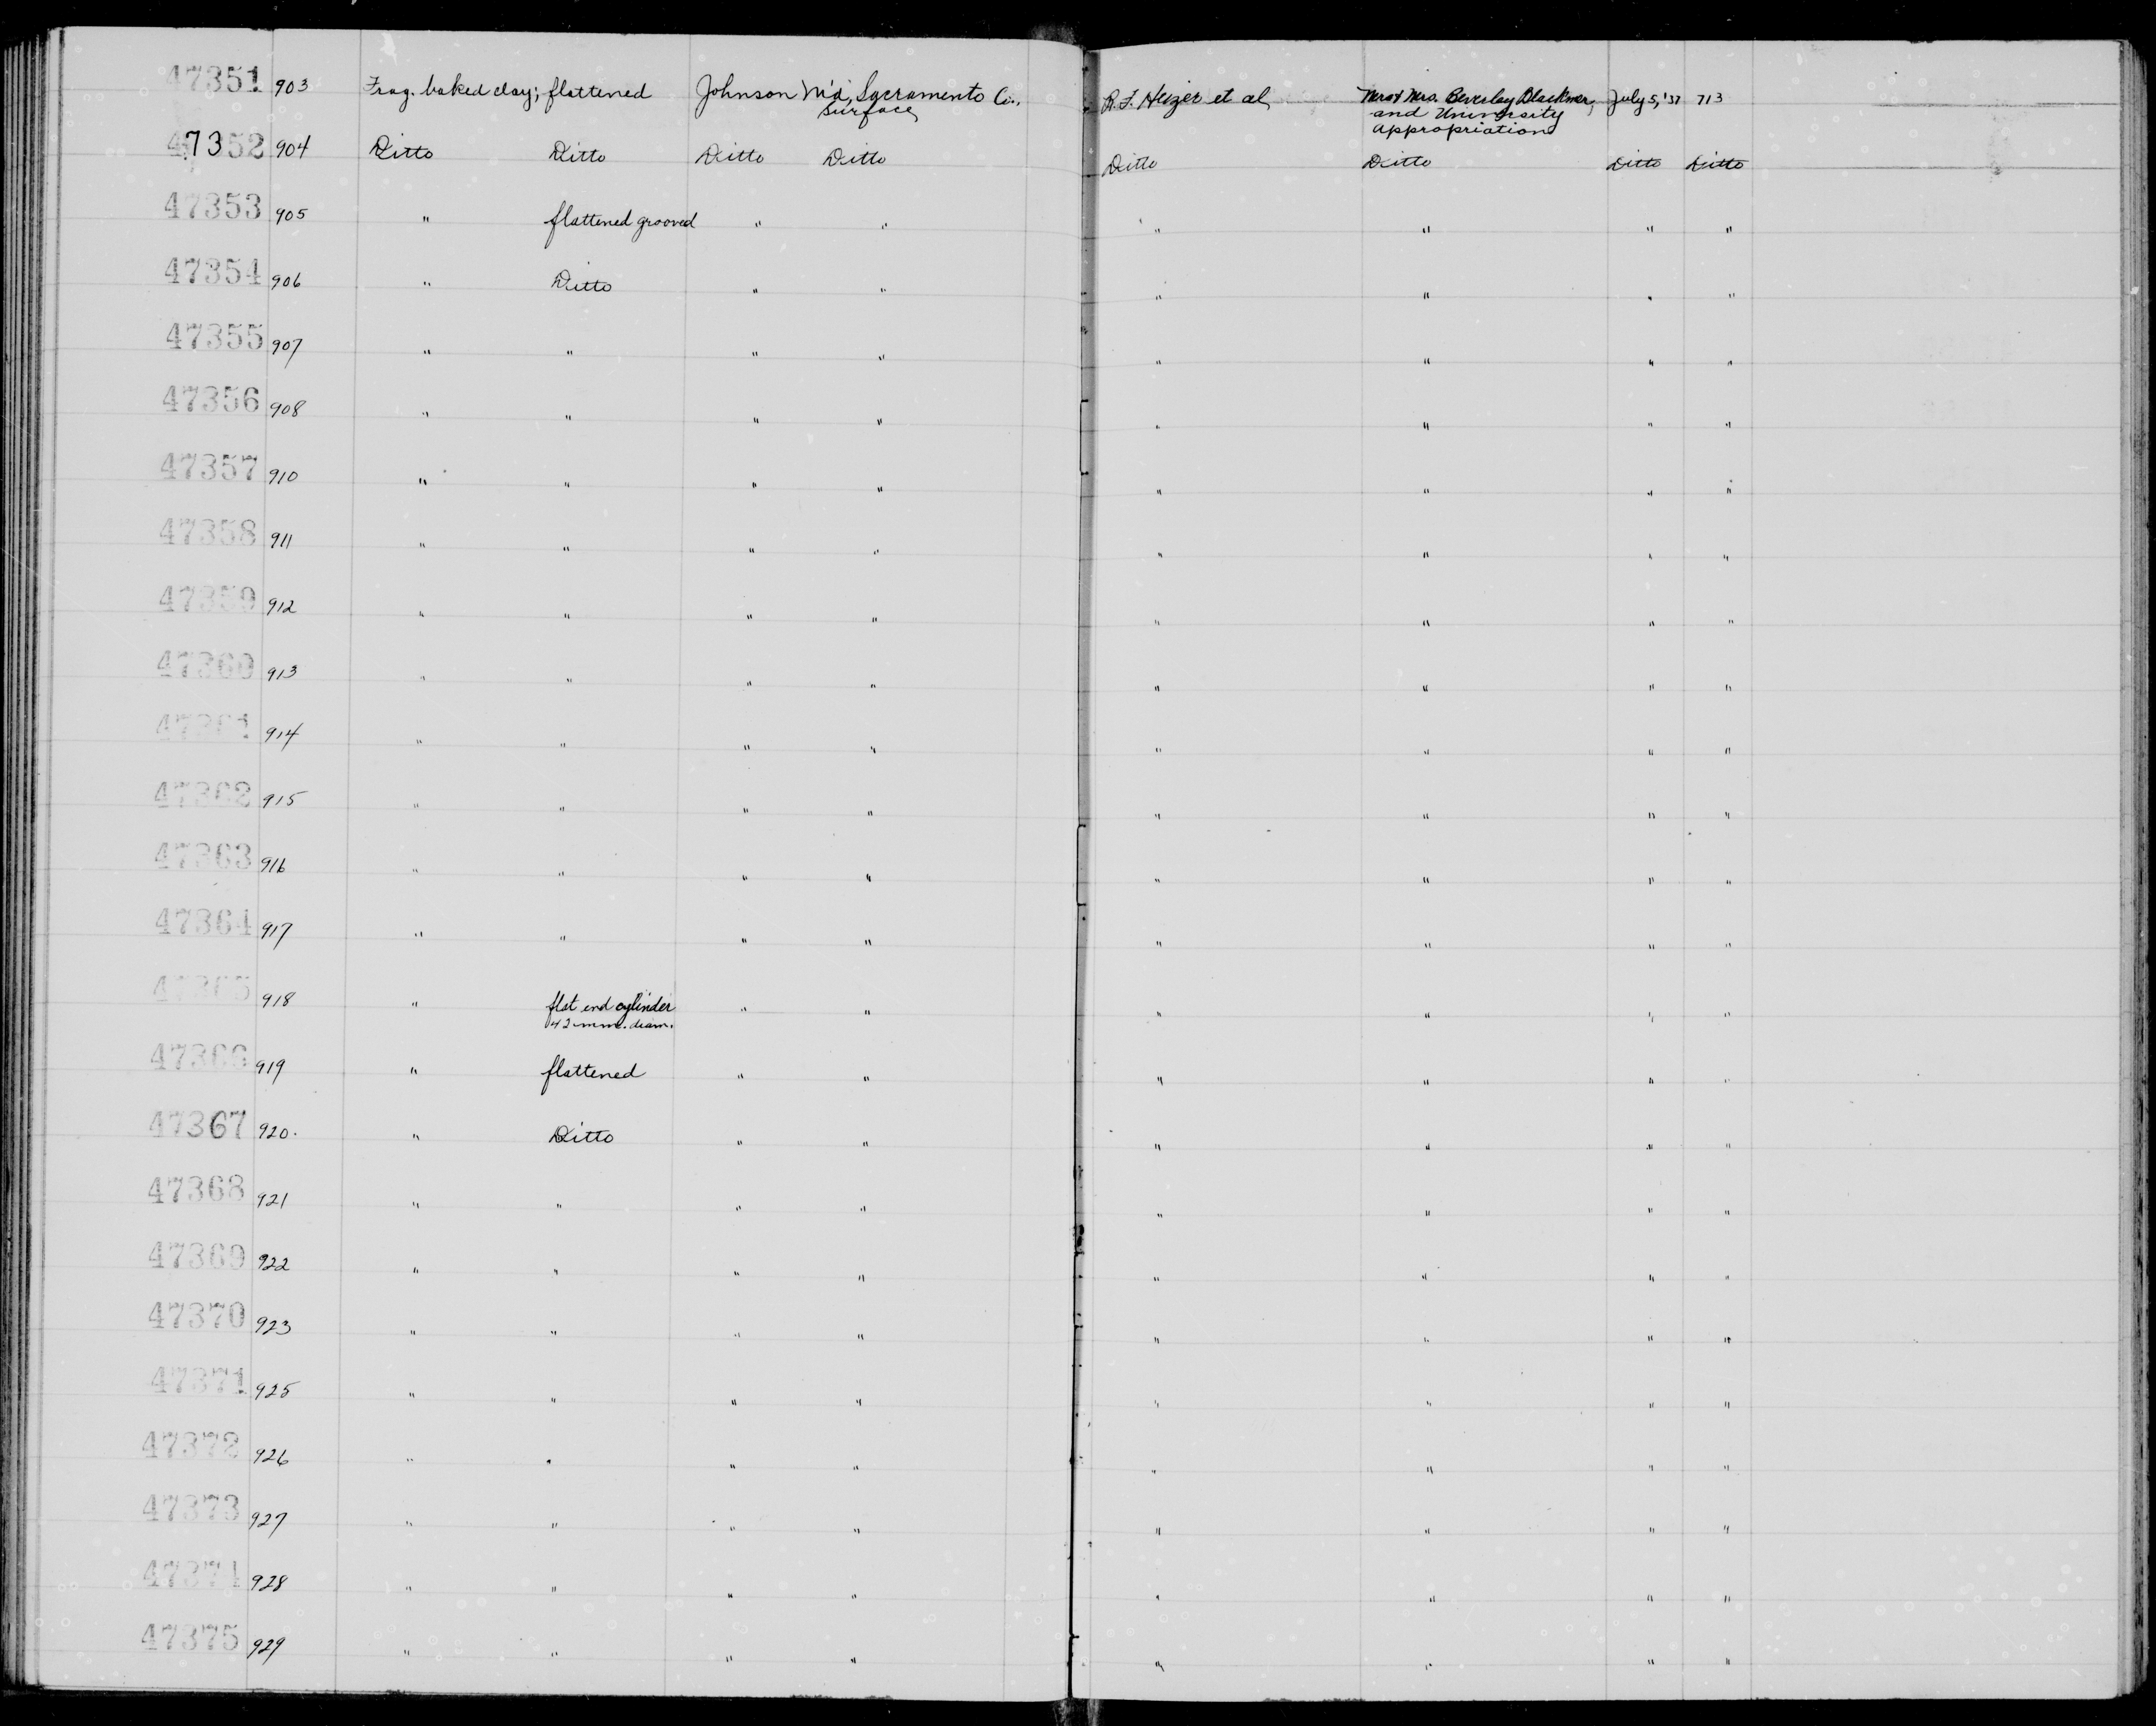 47351 903 Frag. baked clay; flattened Johnson M'd, Sacramento Co., R.F. Heizer et al, Mr. & Mrs. Beverley Blackmer, July 5, '37 713
surface, and University
appropriation
47352 904 Ditto Ditto Ditto Ditto Ditto Ditto Ditto Ditto
47353 905 " flattened grooved " " " " " "
47354 906 " Ditto " " " " " "
47355 907 " " " " " " " "
47356 908 " " " " " " " "
47357 910 " " " " " " " "
47358 911 " " " " " " " "
47359 912 " " " " " " " "
47360 913 " " " " " " " "
47361 914 " " " " " " " "
47362 915 " " " " " " " "
47363 916 " " " " " " " "
47364 917 " " " " " " " "
47365 918 " flat end cylinder " " " " " "
42 mm. diam.
47366 919 " flattened " " " " " "
47367 920. " Ditto " " " " " "
47368 921 " " " " " " " "
47369 922 " " " " " " " "
47370 923 " " " " " " " "
47371 925 " " " " " " " "
47372 926 " " " " " " " "
47373 927 " " " " " " " "
47374 928 " " " " " " " "
47375 929 " " " " " " " "